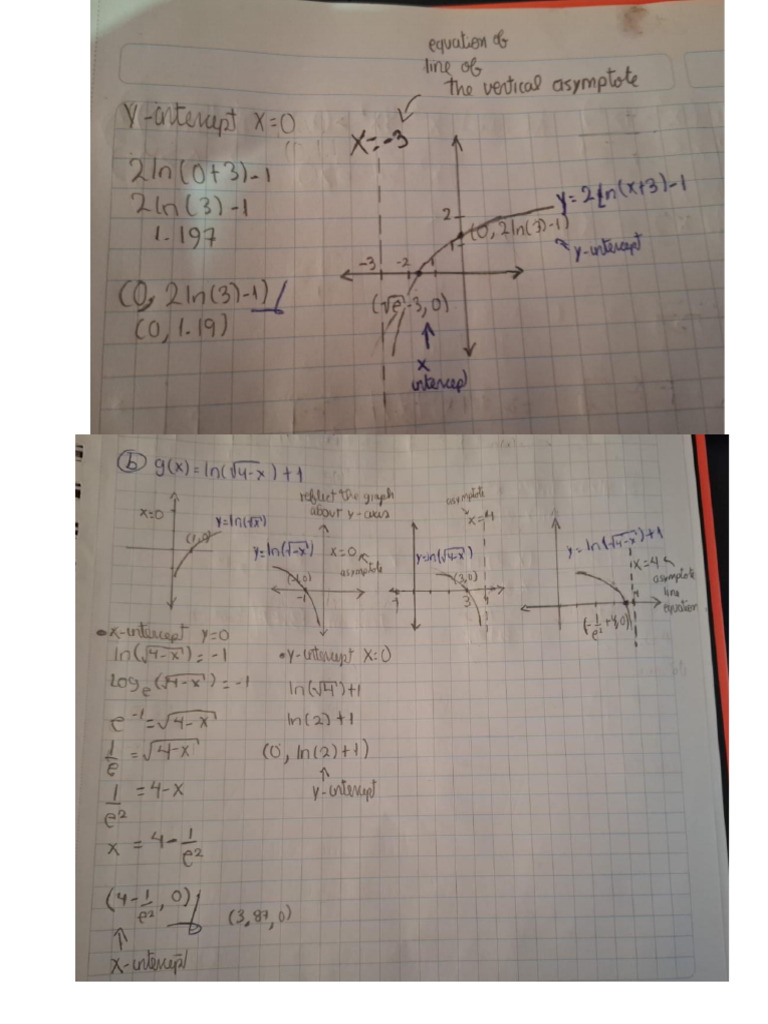 equation of
line of
the vertical asymptote
y-intercept x=0
x=-3
2ln(0+3)-1
2ln(3)-1
1.197
(0, 2ln(3)-1)
(0, 1.19)
y=2ln(x+3)-1
2
(0, 2ln(3)-1)
y-intercept
-3 -2
(√e-3, 0)
x
intercep
b g(x)=ln(√4-x)+1
x=0
y=ln(√x)
(1,0)
reflect the graph
about y-axis
y=ln(√-x)
x=0
asymptote
(-1,0)
-1
asymptote
x=4
y=ln(√4-x)
(3,0)
3 4
y=ln(√4-x)+1
x=4
asymptote
line
equation
4
(-1/e²+4,0)
x-intercept y=0
ln(√4-x)=-1
log e (√4-x)=-1
e⁻¹=√4-x
1/e=√4-x
1/e²=4-x
x=4-1/e²
(4-1/e², 0)
(3,87,0)
x-intercept
y-intercept x=0
ln(√4)+1
ln(2)+1
(0, ln(2)+1)
y-intercept